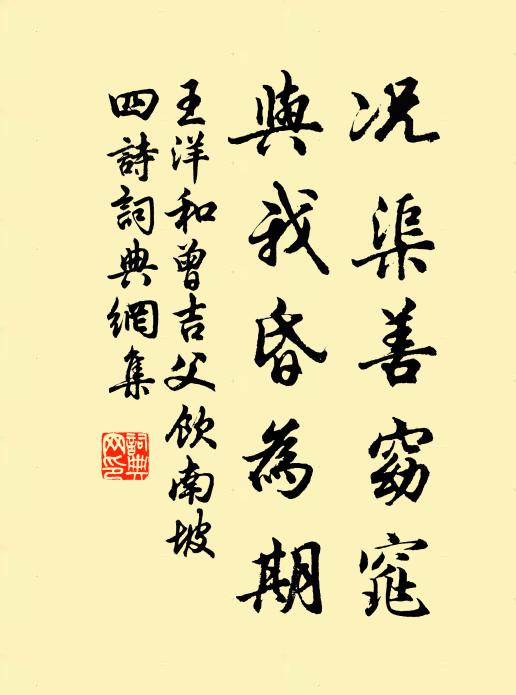 况渠善窈窕
與我昏為期
王洋和曾吉父飲南坡
四詩詞典網集
詞典網印